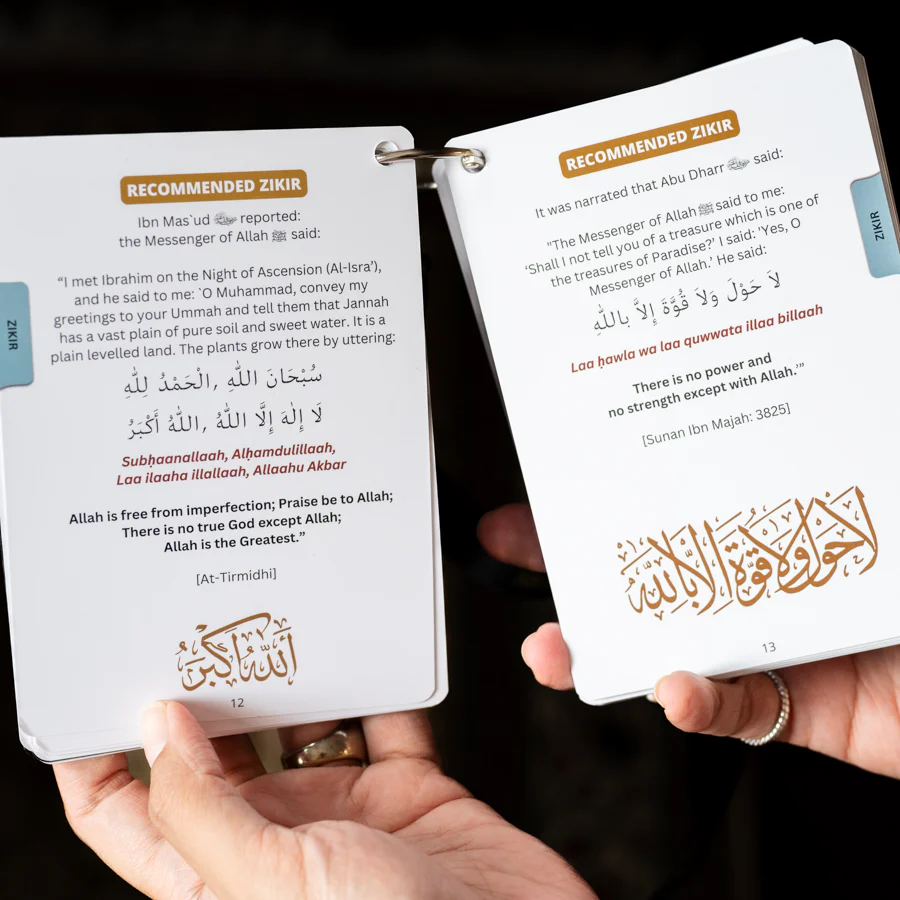 RECOMMENDED ZIKIR
Ibn Mas`ud رضي الله عنه reported:
the Messenger of Allah ﷺ said:
“I met Ibrahim on the Night of Ascension (Al-Isra’),
and he said to me: `O Muhammad, convey my
greetings to your Ummah and tell them that Jannah
has a vast plain of pure soil and sweet water. It is a
plain levelled land. The plants grow there by uttering:
سُبْحَانَ اللّٰهِ ,الْحَمْدُ لِلّٰهِ
لَا إِلٰهَ إِلَّا اللّٰهُ ,اللّٰهُ أَكْبَرُ
Subḥaanallaah, Alḥamdulillaah,
Laa ilaaha illallaah, Allaahu Akbar
Allah is free from imperfection; Praise be to Allah;
There is no true God except Allah;
Allah is the Greatest.”
[At-Tirmidhi]
اَللّٰهُ اَكْبَرُ
12
ZIKIR
RECOMMENDED ZIKIR
It was narrated that Abu Dharr رضي الله عنه said:
"The Messenger of Allah ﷺ said to me:
‘Shall I not tell you of a treasure which is one of
the treasures of Paradise?’ I said: ‘Yes, O
Messenger of Allah.’ He said:
لاَ حَوْلَ وَلاَ قُوَّةَ إِلاَّ باللّٰهِ
Laa ḥawla wa laa quwwata illaa billaah
There is no power and
no strength except with Allah.’”
[Sunan Ibn Majah: 3825]
لَا حَوْلَ وَلَا قُوَّةَ اِلَّا بِاللّٰهِ
13
ZIKIR